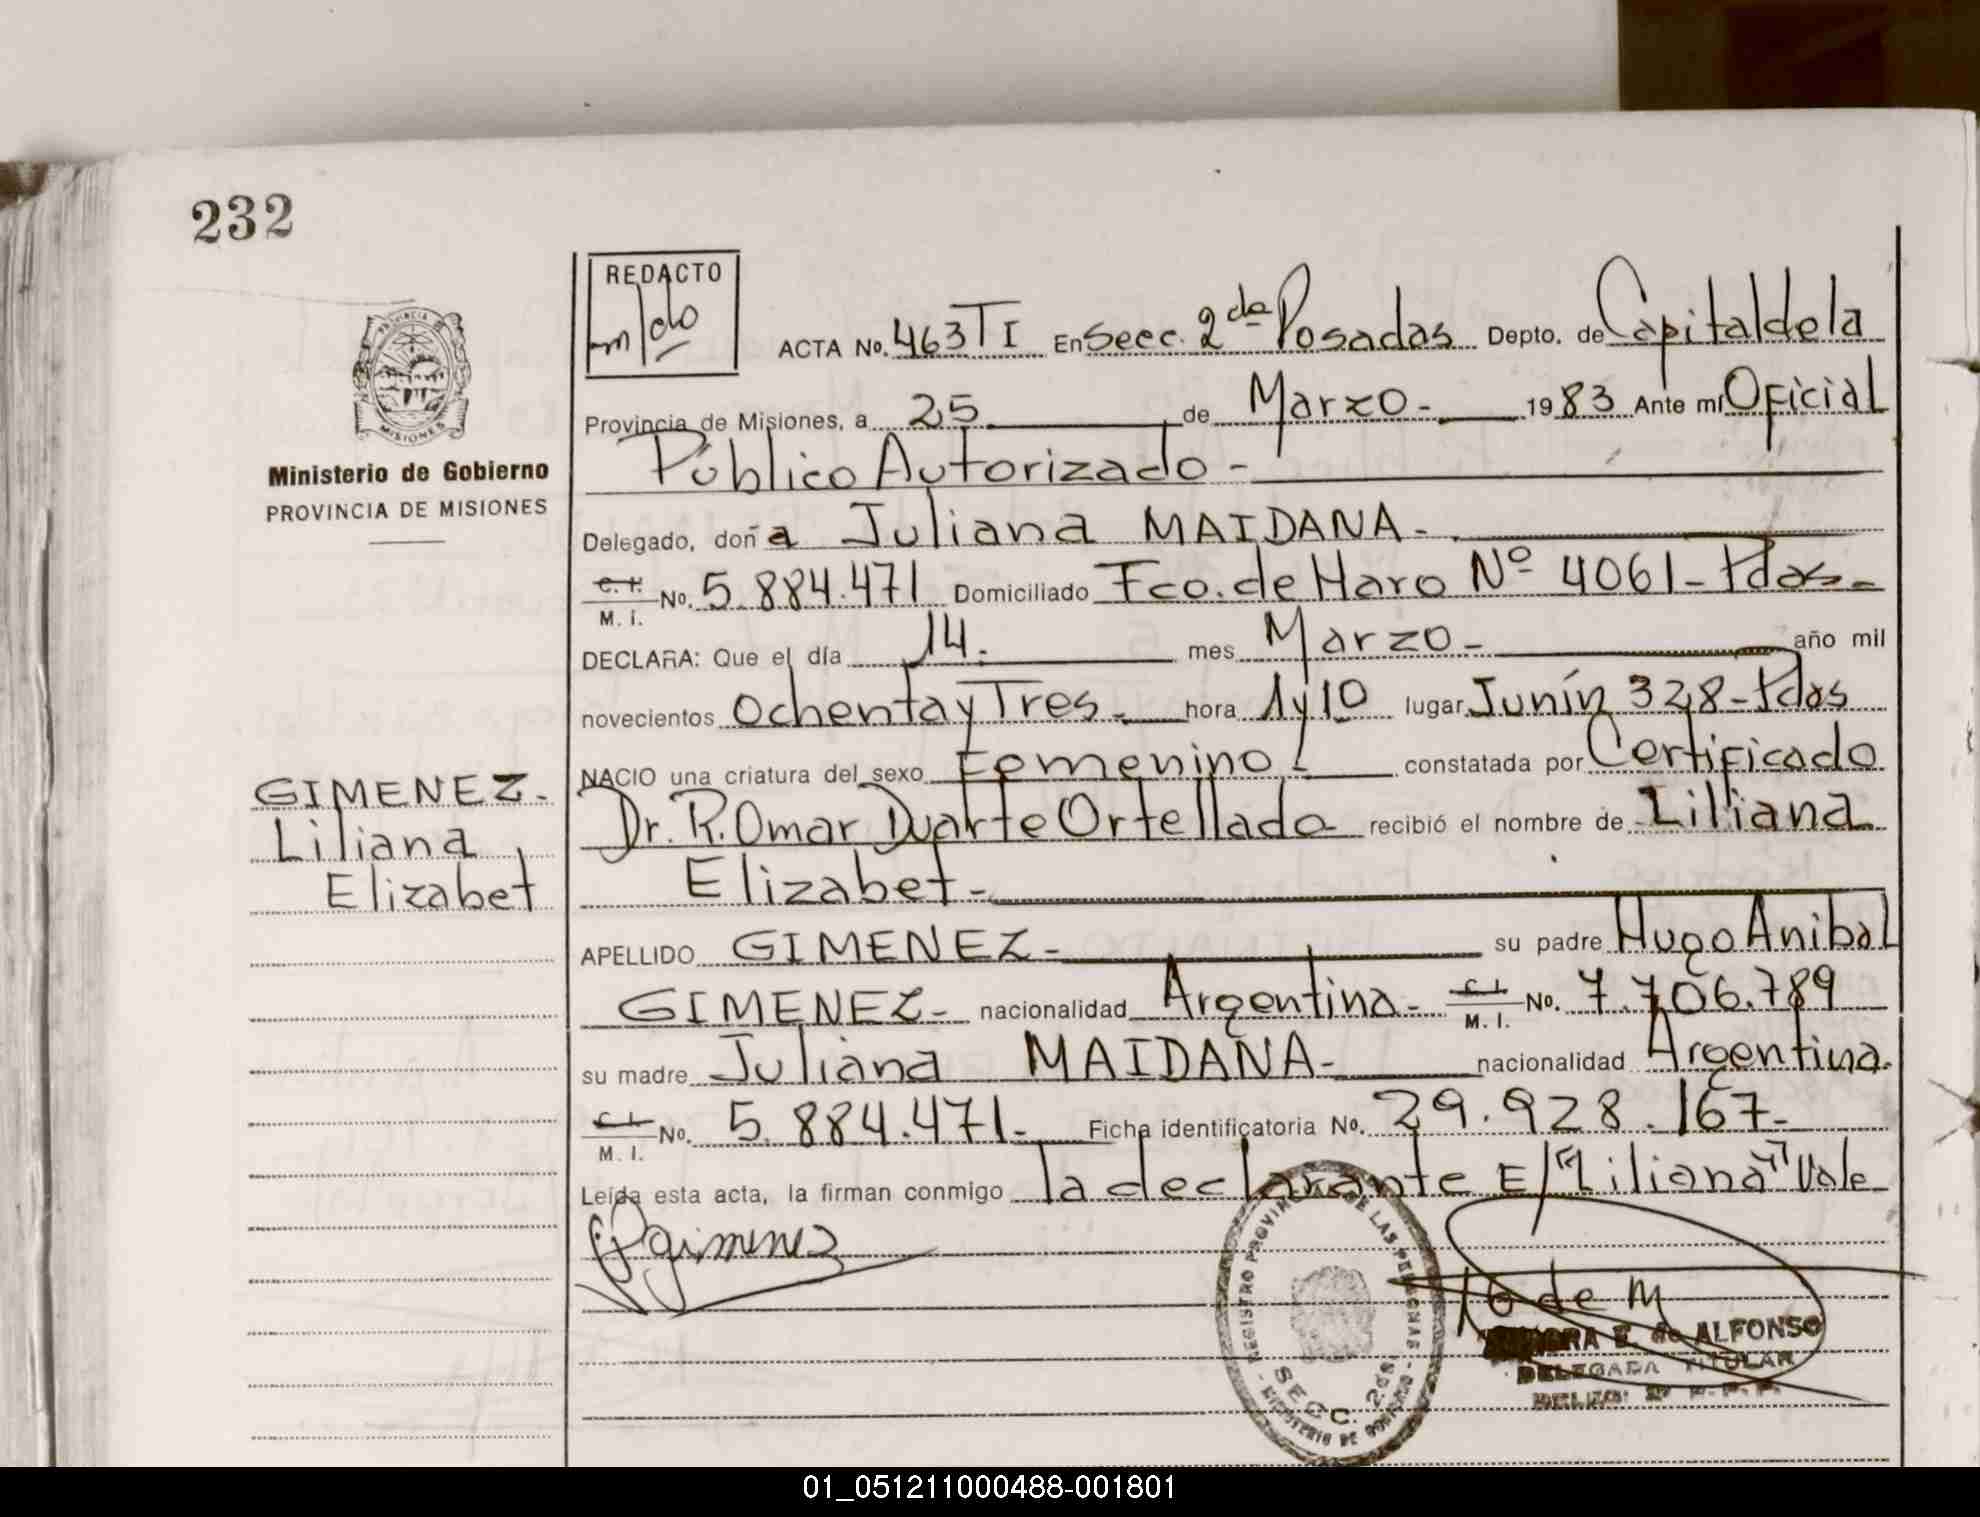 232
REDACTO
ACTA No. 463 T I En Secc. 2da Posadas Depto. de Capital de la
Provincia de Misiones, a 25 de Marzo - 1983 Ante mí Oficial
Público Autorizado -
Ministerio de Gobierno
PROVINCIA DE MISIONES
Delegado, doña Juliana MAIDANA -
C. I.
M. I. No. 5.884.471 Domiciliado Fco. de Haro Nº 4061 - Pdas -
DECLARA: Que el día 14. mes Marzo - año mil
novecientos Ochenta y Tres - hora 1 y 10 lugar Junín 328 - Pdas
NACIO una criatura del sexo Femenino - constatada por Certificado
Dr. R. Omar Duarte Ortellado recibió el nombre de Liliana
Elizabet -
GIMENEZ -
Liliana
Elizabet
APELLIDO GIMENEZ - su padre Hugo Anibal
GIMENEZ - nacionalidad Argentina - C. I.
M. I. No. 7.706.789
su madre Juliana MAIDANA - nacionalidad Argentina.
C. I.
M. I. No. 5.884.471. Ficha identificatoria No. 29.928.167 -
Leída esta acta, la firman conmigo la declarante E/"Liliana" Vale
gimenez
REGISTRO PROVINCIAL DE LAS PERSONAS
SECC. 2da.
MINISTERIO DE GOBIERNO
E. de ALFONSO
DELEGADA TITULAR
01_051211000488-001801